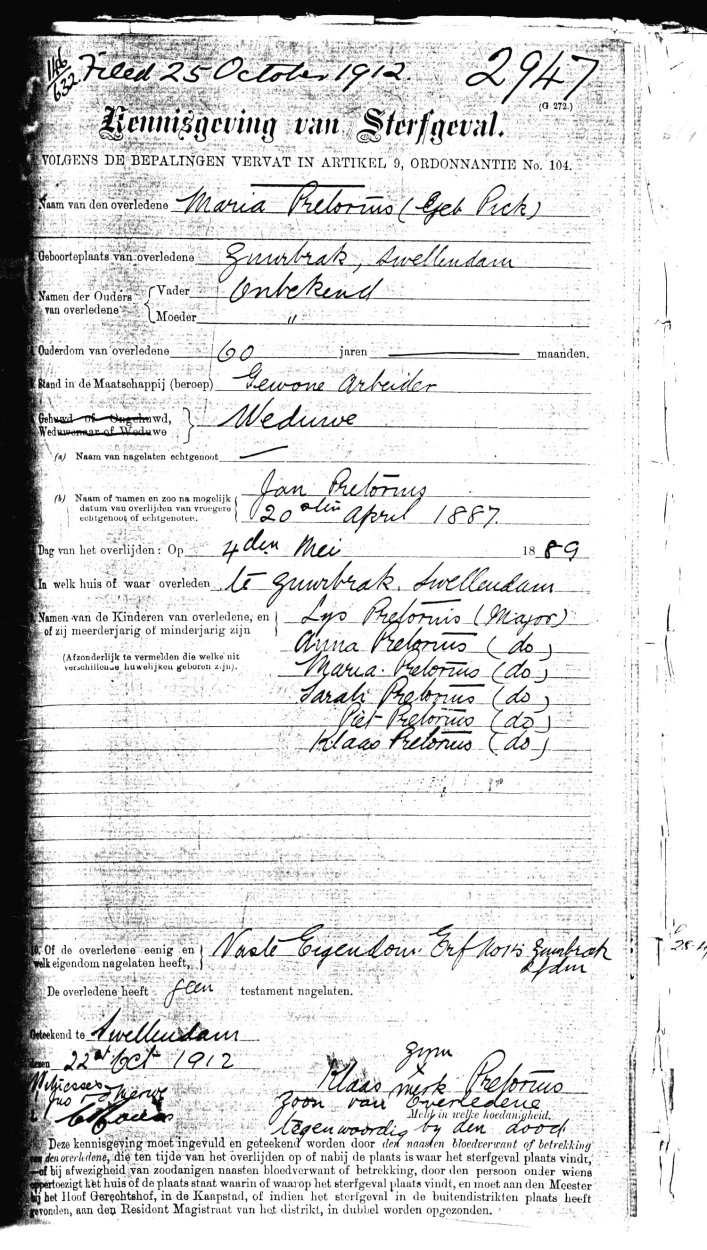 146
632
Filed 25 October 1912.
2947
(G. 272.)
Kennisgeving van Sterfgeval.
VOLGENS DE BEPALINGEN VERVAT IN ARTIKEL 9, ORDONNANTIE No. 104.
Naam van den overledene Maria Pretorius (Geb Pick)
Geboorteplaats van overledene Zuurbrak, Swellendam
Namen der Ouders van overledene { Vader Onbekend
Moeder "
Ouderdom van overledene 60 jaren maanden.
Stand in de Maatschappij (beroep) Gewone Arbeider
Gehuwd of Ongehuwd,
Weduwenaar of Weduwe } Weduwe
(a) Naam van nagelaten echtgenoot —
(b) Naam of namen en zoo na mogelijk
datum van overlijden van vroegere
echtgenoot of echtgenoten.
Jan Pretorius
20sten April 1887.
Dag van het overlijden: Op 4den Mei 1889
In welk huis of waar overleden te Zuurbrak. Swellendam
Namen van de Kinderen van overledene, en
of zij meerderjarig of minderjarig zijn
(Afzonderlijk te vermelden die welke uit
verschillende huwelijken geboren zijn).
Lys Pretorius (Major)
Anna Pretorius (do)
Maria Pretorius (do)
Sarah Pretorius (do)
Piet Pretorius (do)
Klaas Pretorius (do)
10. Of de overledene eenig en
welk eigendom nagelaten heeft, } Vaste Eigendom. Erf No Zuurbrak
Sjdm
De overledene heeft geen testament nagelaten.
Geteekend te Swellendam
22st Oct 1912
Witnesses
zyn
Klaas merk Pretorius
zoon van Overledene
Meld in welke hoedanigheid.
tegenwoordig by den dood
Deze kennisgeving moet ingevuld en geteekend worden door den naasten bloedverwant of betrekking
van den overledene, die ten tijde van het overlijden op of nabij de plaats is waar het sterfgeval plaats vindt,
of bij afwezigheid van zoodanigen naasten bloedverwant of betrekking, door den persoon onder wiens
oppertoezigt het huis of de plaats staat waarin of waarop het sterfgeval plaats vindt, en moet aan den Meester
bij het Hoof Gerechtshof, in de Kaapstad, of indien het sterfgeval in de buitendistrikten plaats heeft
gevonden, aan den Resident Magistraat van het distrikt, in dubbel worden opgezonden.